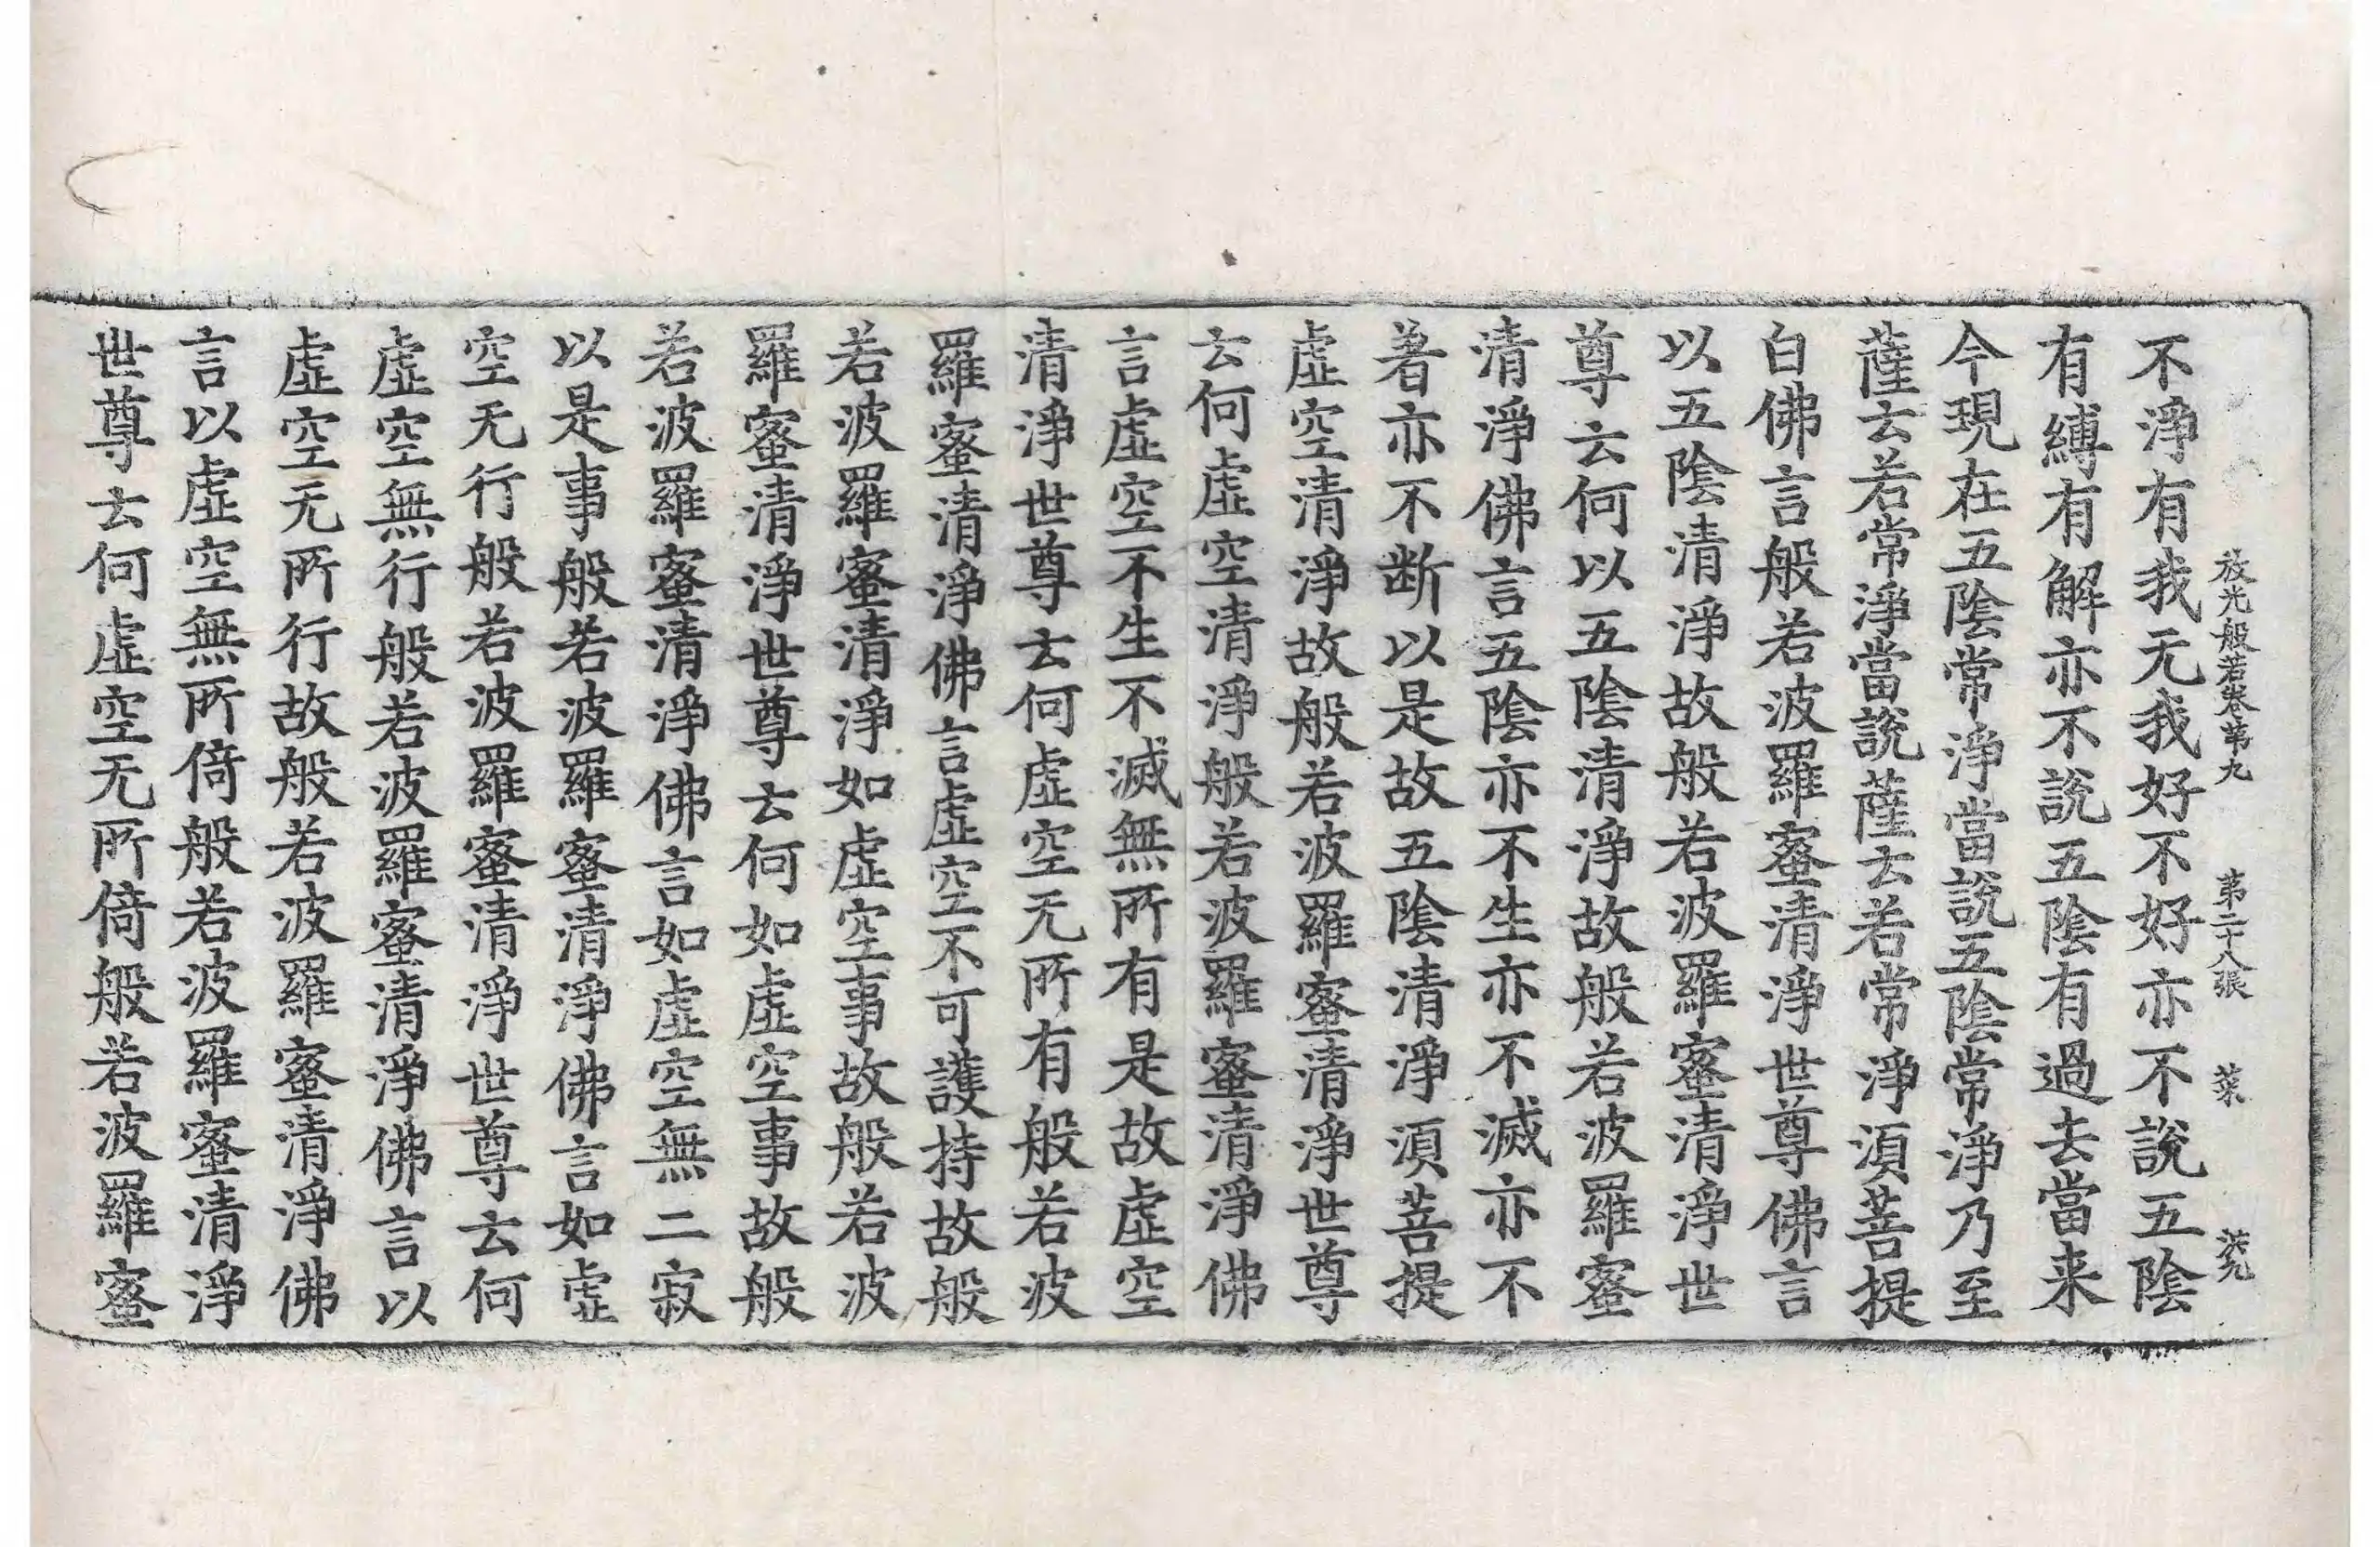 放光般若卷第九 第二十八張 菜
不淨有我无我好不好亦不說五陰
有縛有解亦不說五陰有過去當来
今現在五陰常淨當說五陰常淨乃至
薩云若常淨當說薩云若常淨湏菩提
白佛言般若波羅蜜清淨世尊佛言
以五陰清淨故般若波羅蜜清淨世
尊云何以五陰清淨故般若波羅蜜
清淨佛言五陰亦不生亦不滅亦不
著亦不断以是故五陰清淨湏菩提
虛空清淨故般若波羅蜜清淨世尊
云何虛空清淨般若波羅蜜清淨佛
言虛空不生不滅無所有是故虛空
清淨世尊云何虛空无所有般若波
羅蜜清淨佛言虛空不可護持故般
若波羅蜜清淨如虛空事故般若波
羅蜜清淨世尊云何如虛空事故般
若波羅蜜清淨佛言如虛空無二寂
以是事般若波羅蜜清淨佛言如虛
空无行般若波羅蜜清淨世尊云何
虛空無行般若波羅蜜清淨佛言以
虛空无所行故般若波羅蜜清淨佛
言以虛空無所倚般若波羅蜜清淨
世尊云何虛空无所倚般若波羅蜜